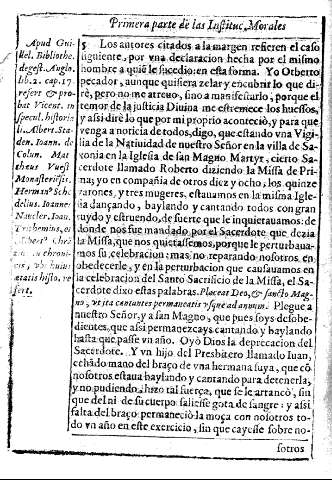 Primera parte de las Instituc. Morales
Apud Gui-
liel. Bibliothe.
degest. Anglo.
lib. 2. cap. 17.
refert & pro-
bat Vicent. in
specul. histori
li. Albert. Sta-
den. Ioann. de
Colun. Mat
theus Vuest
Monasteriesis.
Herman. Sch
delius. Ioannes
Naucler. Ioan.
Trithemius, et
Albert Chrā
in chroni-
cis, vbi huius
ætatis histo. re-
fert.
5 Los autores citados a la margen refieren el caso
siguiente, por vna declaracion hecha por el mismo
hombre a quiē le sucedio: en esta forma. Yo Otberto
pecador, aunque quisiera zelar y encubrir lo que di-
rè, pero no me atreuo, sino a manifestarlo, porque el
temor de la justicia Diuina me estremece los huessos,
y assi dirè lo que por mi proprio aconteciò, y para que
venga a noticia de todos, digo, que estando vna Vigi-
lia de la Natiuidad de nuestro Señor en la villa de Sa-
xonia en la Iglesia de san Magno Martyr, cierto Sa-
cerdote llamado Roberto diziendo la Missa de Pri-
ma; yo en compañia de otros diez y ocho, los quinze
varones, y tres mugeres, estauamos en la misma Igle-
sia dançando, baylando y cantando todos con gran
ruydo y estruendo, de suerte que le inquietauamos: de
donde nos fue mandado por el Sacerdote que dezia
la Missa, que nos quietassemos, porque le perturbaua-
mos su celebracion: mas no reparando nosotros en
obedecerle, y en la perturbacion que causauamos en
la celebracion del Santo Sacrificio de la Missa, el Sa-
cerdote dixo estas palabras. Placeat Deo, & sancto Mag-
no, vt ita cantantes permaneatis vsque ad annum. Plegue a
nuestro Señor, y a san Magno, que pues soys desobe-
dientes, que assi permanezcays cantando y baylando
hasta que passe vn año. Oyò Dios la deprecacion del
Sacerdote. Y vn hijo del Presbitero llamado Iuan,
echādo mano del braço de vna hermana suya, que cō
nosotros estaua baylando y cantando para detenerla,
y no pudiendo, hizo tal fuerça, que se le arrancò, sin
que del ni de su cuerpo saliesse gota de sangre: y assi
falta del braço permaneciò la moça con nosotros to-
do vn año en este exercicio, sin que cayesse sobre no-
sotros